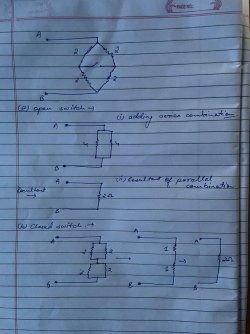 A
2 2
2 2
B
(a) open switch →
(i) adding series combination
A
4 4
B
(ii) resultant of parallel combination
resultant →
A
2Ω
B
(b) closed switch →
A
2 2
2 2
B
→
A
1
1
B
→
A
2Ω
B